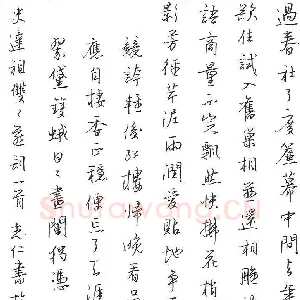 過春社了度簾幕中間去年
欲住試入舊巢相並還相雕
語商量不定飄然快拂花梢
影芳徑芹泥雨潤愛貼地爭
競誇輕俊紅樓歸晚看足
應自棲香正穩便忘了天涯
翠黛雙蛾日日畫闌獨憑
史達祖雙〻燕詞一首